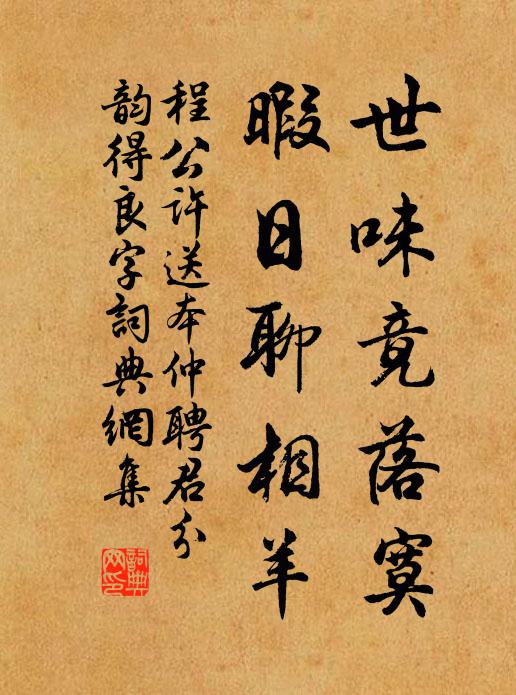 世味竟落寞
暇日聊相羊
程公許送本仲聘君分
韵得良字詞典網集
詞典網印